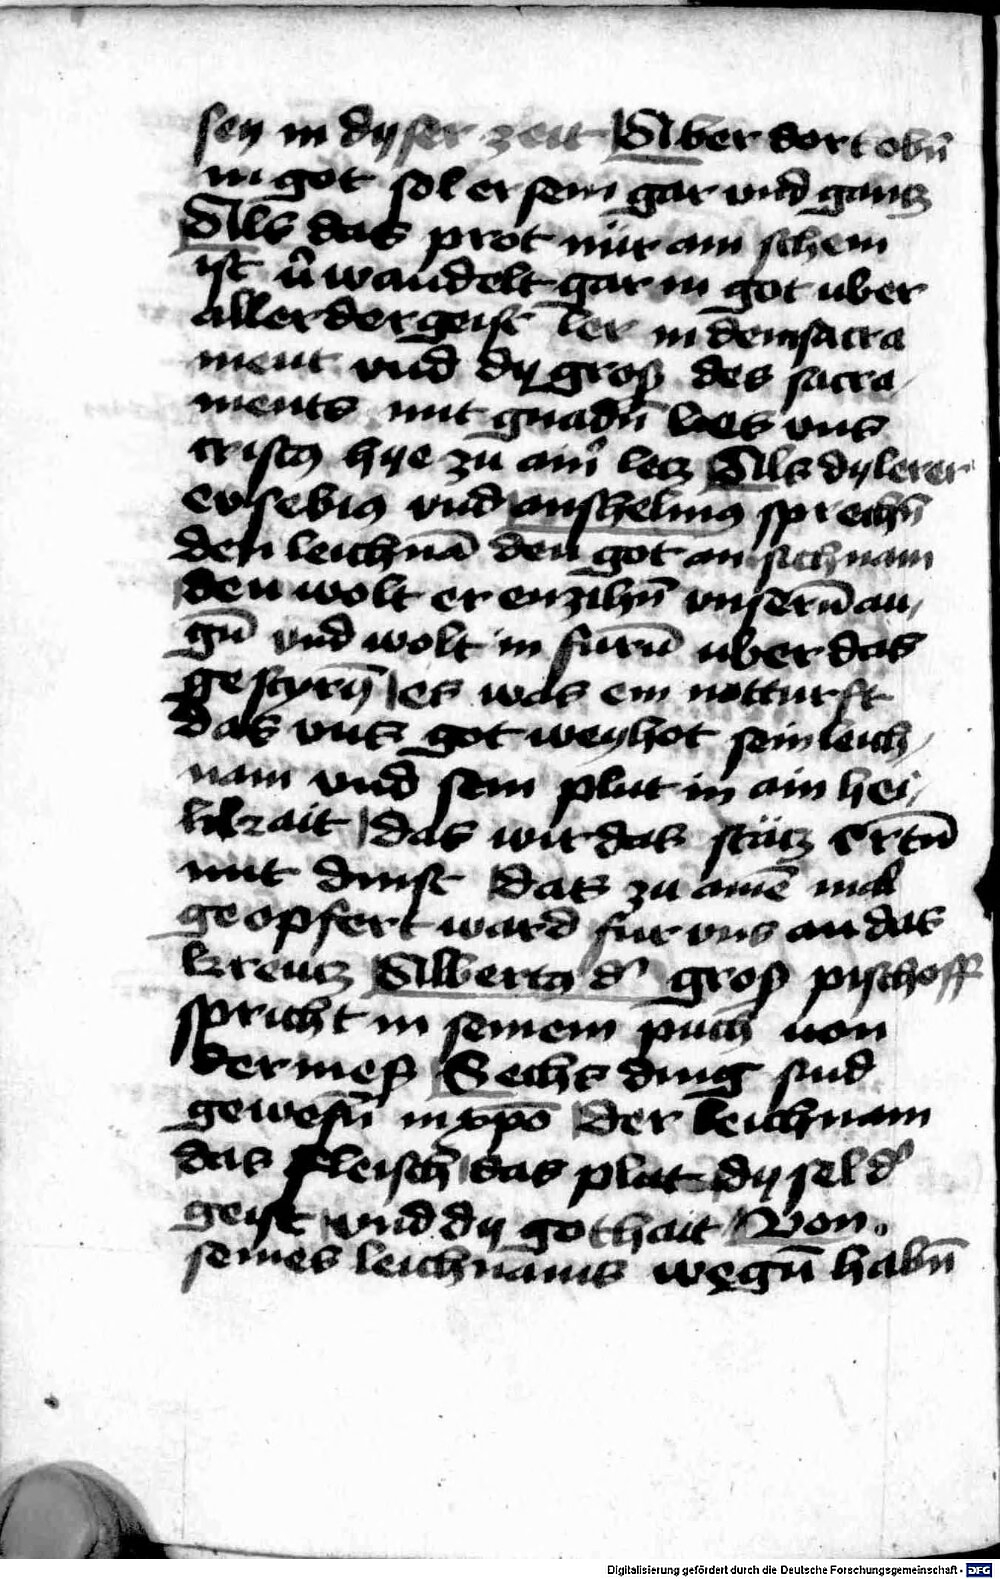 sey in dyser zeit Aber dort obn̄
in got sol er sein gar vnd gantz
Als das prot nür ain schein
ist v̄wandelt gar in got uber
aller der geist ler in dem sacra
ment vnd dy groß des sacra/
ments mit gnadn̄ lies vns
cristꝰ hye zu aim̄ letz Als dy lerer
eusebiꝰ vnd anshelmꝰ sprechn̄
den leichnā den got an sich nam
den wolt er enzihn̄ vnsern̄ au/
gn̄ vnd wolt in furn̄ uber das
gestyrn̄ es was ein notturft
das vns got weyhot sein leich/
nam vnd sein plut in ain hei/
likait das wir das stätz Ertn̄
mit dinst Das zu aine mal
geopfert ward für vns an das
kreutz Albertꝰ d' groß pischoff
spricht in seinem puch von
der meß Sechs ding sind
gewesn̄ in xp̄o Der leichnam
das fleisch das plut dy sel d'
geist vnd dy gothait Von
seines leichnams wegn̄ habn̄
Digitalisierung gefördert durch die Deutsche Forschungsgemeinschaft - DFG